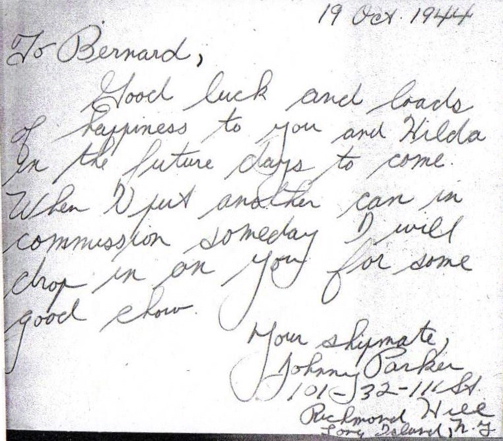 19 Oct. 1944
To Bernard,
Good luck and loads
of happiness to you and Hilda
in the future days to come.
When I put another can in
commission someday I will
drop in on you for some
good chow.
Your shipmate,
Johnny Parker
101-32-111 St.
Richmond Hill
Long Island, N.Y.